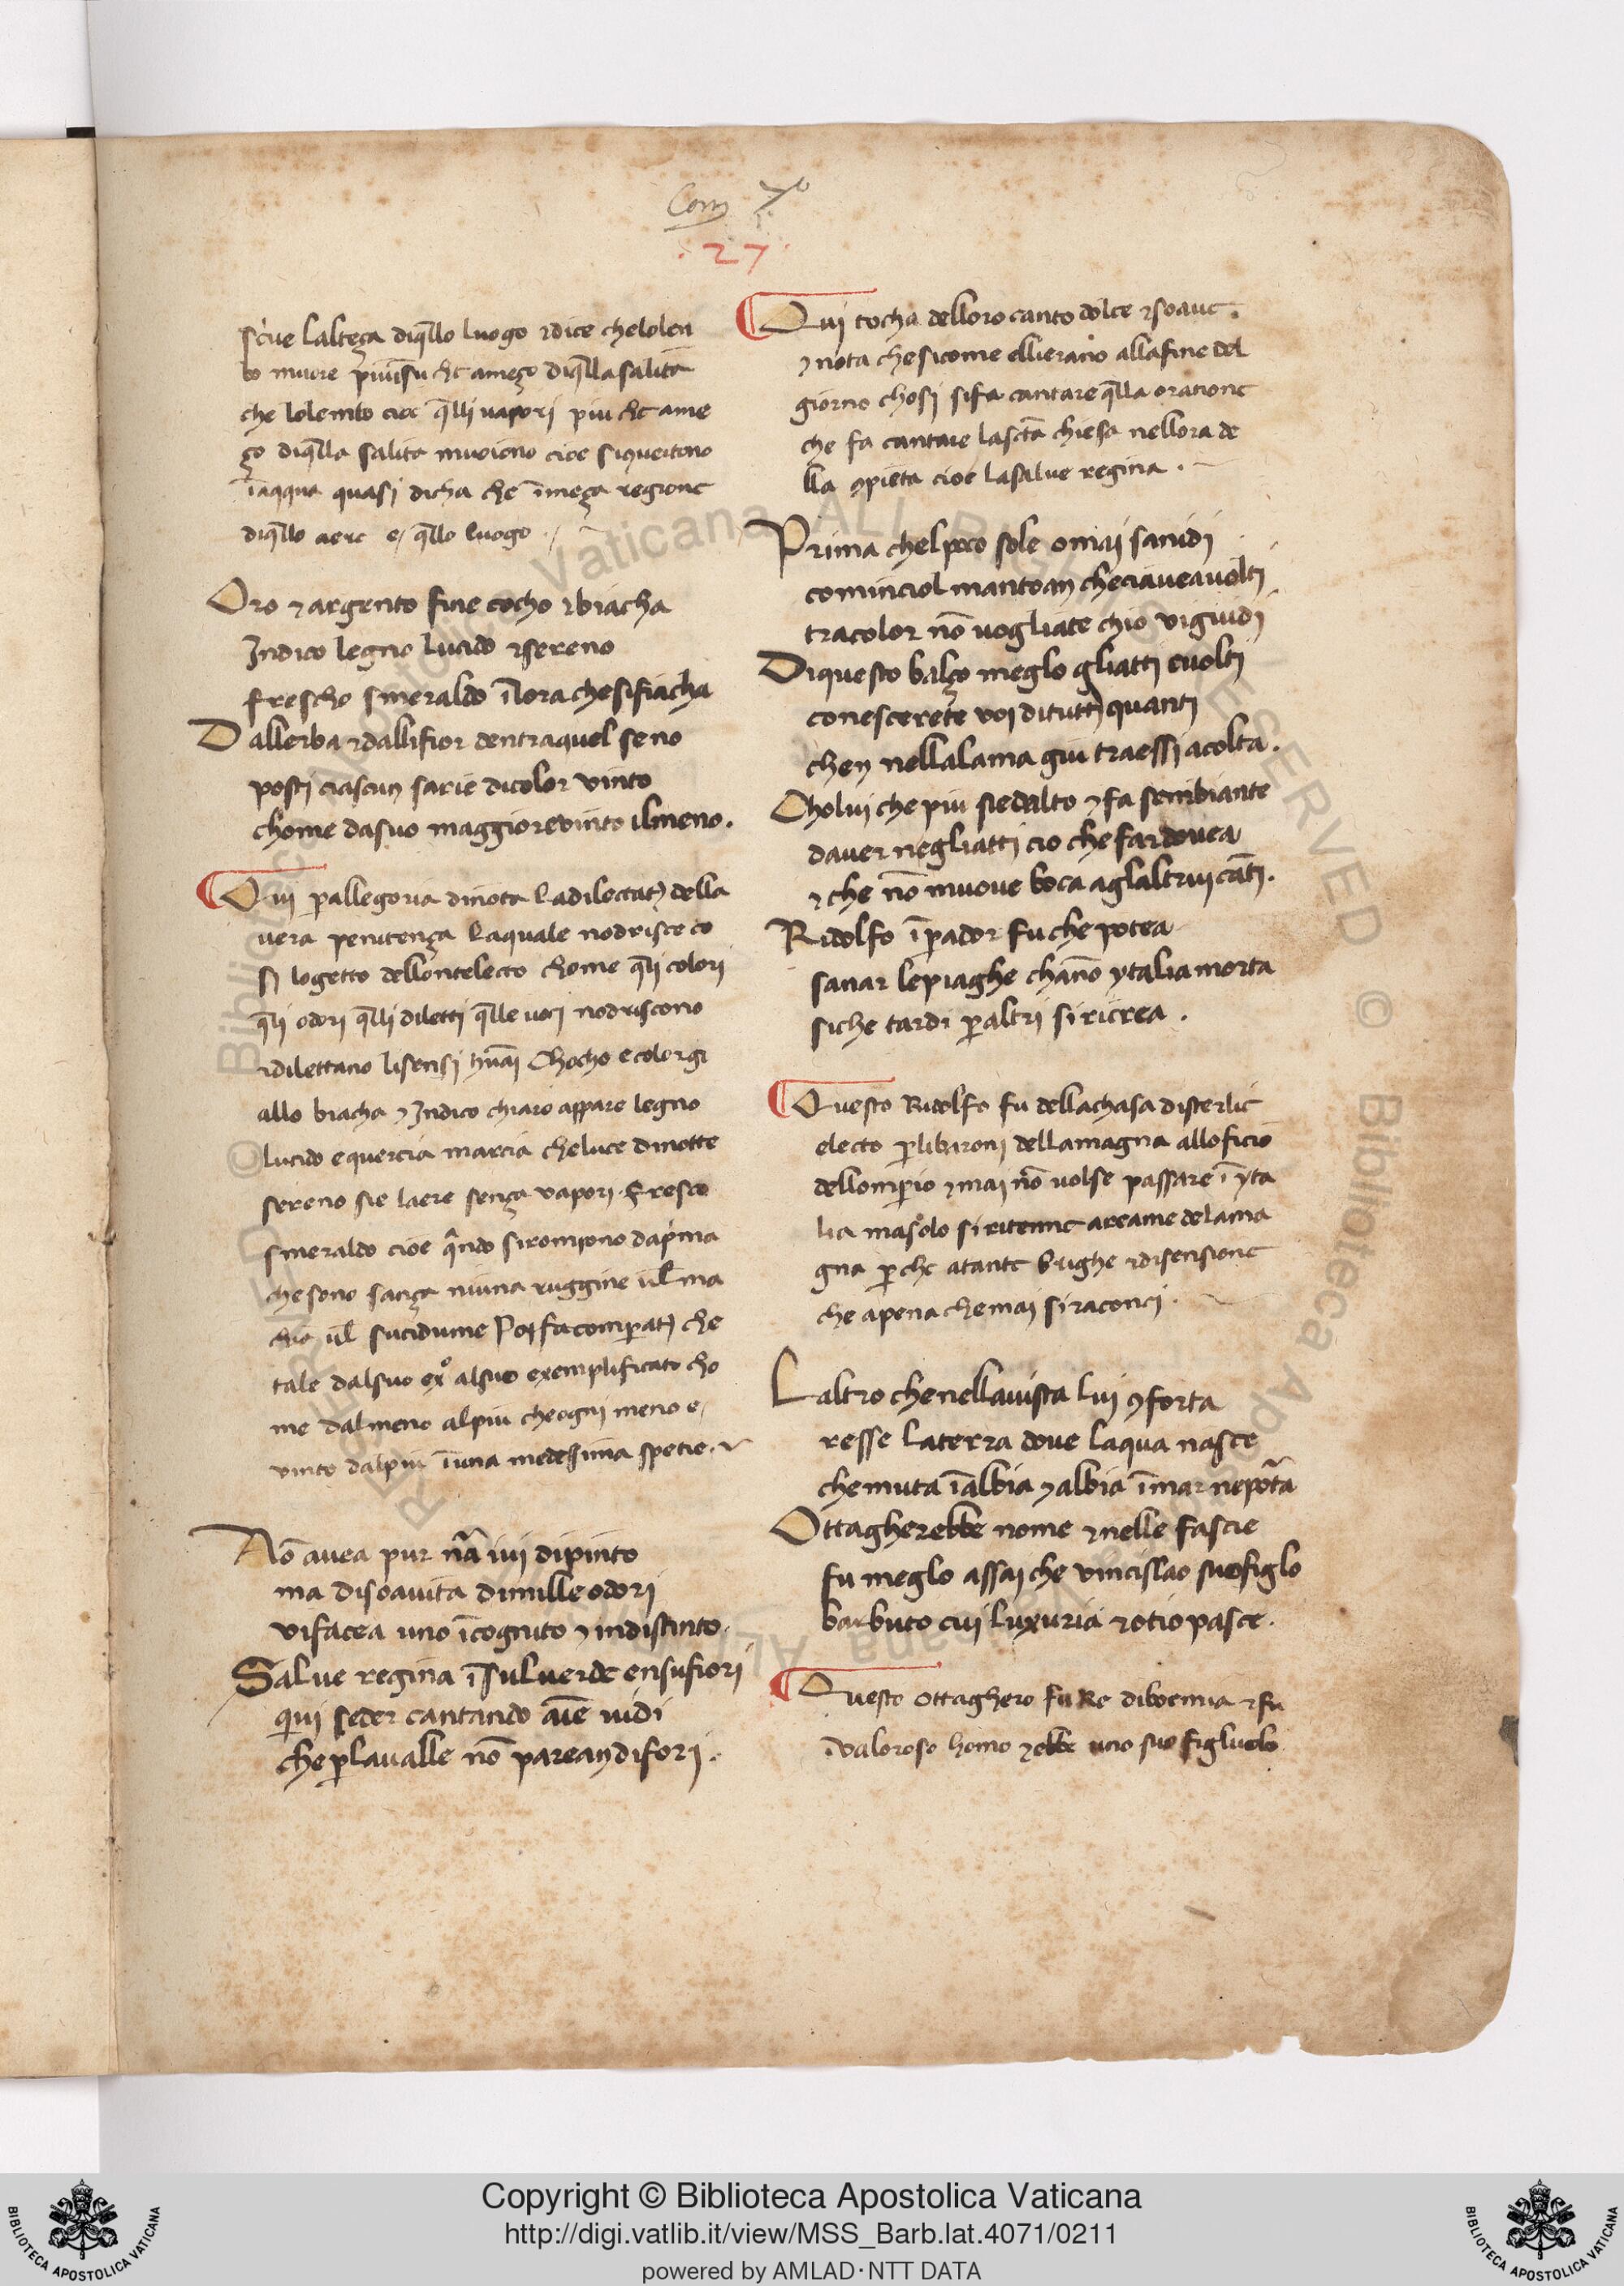 Com 7º
. 27 .
scͥue lalteça diq̄llo luogo ⁊dice chelolen
bo muore piuī su ch̄ ameço diq̄lla salita
che lolembo cioe q̄lli uapori piu ch̄ ame
ço diq̄lla salita muoiono cioe
īaqqua quasi dicha che īmeça regione
diq̄llo aere e/ q̄llo luogo .
Oro ⁊argento fine cocho ⁊biacha
Indico legno lucido ⁊sereno
frescho smeraldo īlora chesifiacha
Dallerba ⁊dallifior dentraquel seno
posti ciascun sarie dicolor vinto
chome dasuo maggiorevinto ilmeno.
Qui p̄allegoria dinota ladilectatꝫ della
uera penitença laquale nodrisce co
si logetto dellontelecto chome q̄li colori
q̄li odori q̄lli diletti q̄lle uoci nodriscono
⁊dilettano lisensi hūai Chocho ecolorgi
allo biacha ⁊Indico chiaro appare legno
lucido equercia marcia cheluce dinotte
sereno sie laere sença vapori. fresco
smeraldo cioe q̄ndo sirompono dap̄ma
chesono sança niuna ruggine ul̄ ma
chia ul̄ sucidume Poi facomparatꝫ che
tale dalsuo exº alsuo exemplificato cho
me dalmeno alpiu cheogni meno e/
vinto dalpiu īuna medesima spetie.
Nō auea pur nā iui dipinto
ma disoauita dimille odori
vifacea uno īcognito ⁊indistinto.
Salue regina ī sulverde ensufiori
quui seder cantando aīe uidi
che p̄lavalle nō pareandifori.
Qui tocha delloro canto dolce ⁊soaue.
⁊nota chesicome ellierano allafine del
giorno chosi sifa cantare q̄lla oratione
che fa cantare lasctā chiesa nellora de
lla ꝯpieta cioe lasalue regina .
Prima chelpoco sole omai sanidi
cominciol mantoan checiaveavolti
tracolor nō uogliate chio viguidi
Diquesto balço meglo gliatti euolti
conescerete voi ditutti quanti
chen nellalama giu traessi acolta.
Cholui che piu siedalto ⁊fa sembiante
daver negliatti cio che fardovea
⁊che nō muove boca aglaltrui cāti.
Ridolfo īp̄ador fuche potea
sanar lepiaghe chāno ytaliamorta
siche tardi p̄altri siricrea .
Questo Ridolfo fu dellachasa disterlic
electo p̄libaroni dellamagna alloficio
dellomp̄io ⁊mai nō volse passare ī yta
lia masolo siritenne areame delama
gna p̄che atante brighe ⁊disensione
che apena chemai siraconci .
Laltro chenellavista lui ꝯforta
resse laterra dove laqua nasce
chemuta īalbia ⁊albia īmar neportā
Ottagherebbe nome ⁊nelle fascie
fu meglo assai che vincislao suofiglo
barbuto cui luxuria ⁊otio pasce.
Questo ottaghero fu Re diboemia ⁊fu
valoroso homo ⁊ebbe uno suo figluolo
© Biblioteca Apostolica Vaticana ALL RIGHTS RESERVED © Biblioteca Apostolica Vaticana ALL RIGHTS RESERVED
Copyright © Biblioteca Apostolica Vaticana
http://digi.vatlib.it/view/MSS_Barb.lat.4071/0211
powered by AMLAD·NTT DATA
BIBLIOTECA APOSTOLICA VATICANA
BIBLIOTECA APOSTOLICA VATICANA